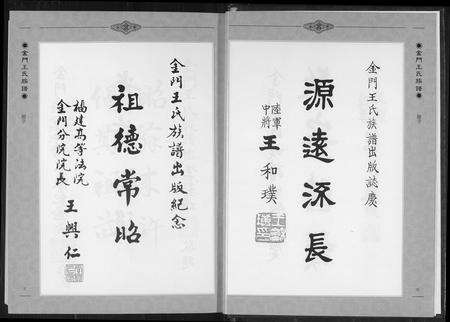 金門王氏族譜
金門王氏族譜出版誌慶
源遠流長
陸軍
中將
王和璞
金門王氏族譜出版紀念
祖德常昭
福建高等法院
金門分院院長
王興仁
金門王氏族譜